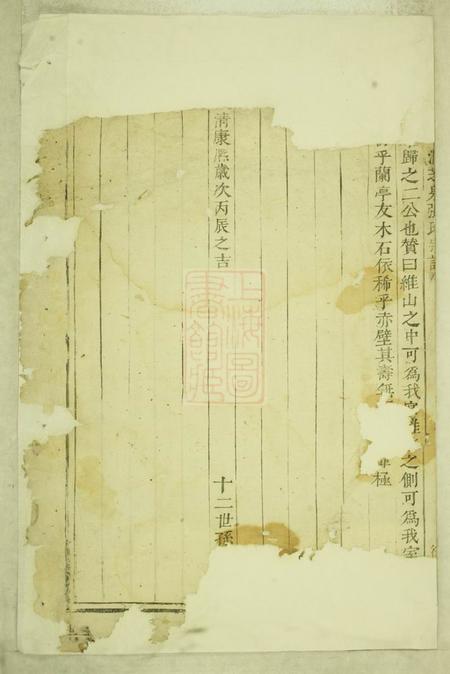 歸之二公也贊曰維山之中可為我 之側可為我室
乎蘭亭友木石依稀乎赤壁其壽無 極
清康熙歲次丙辰之吉
十二世孫
上海圖書館藏